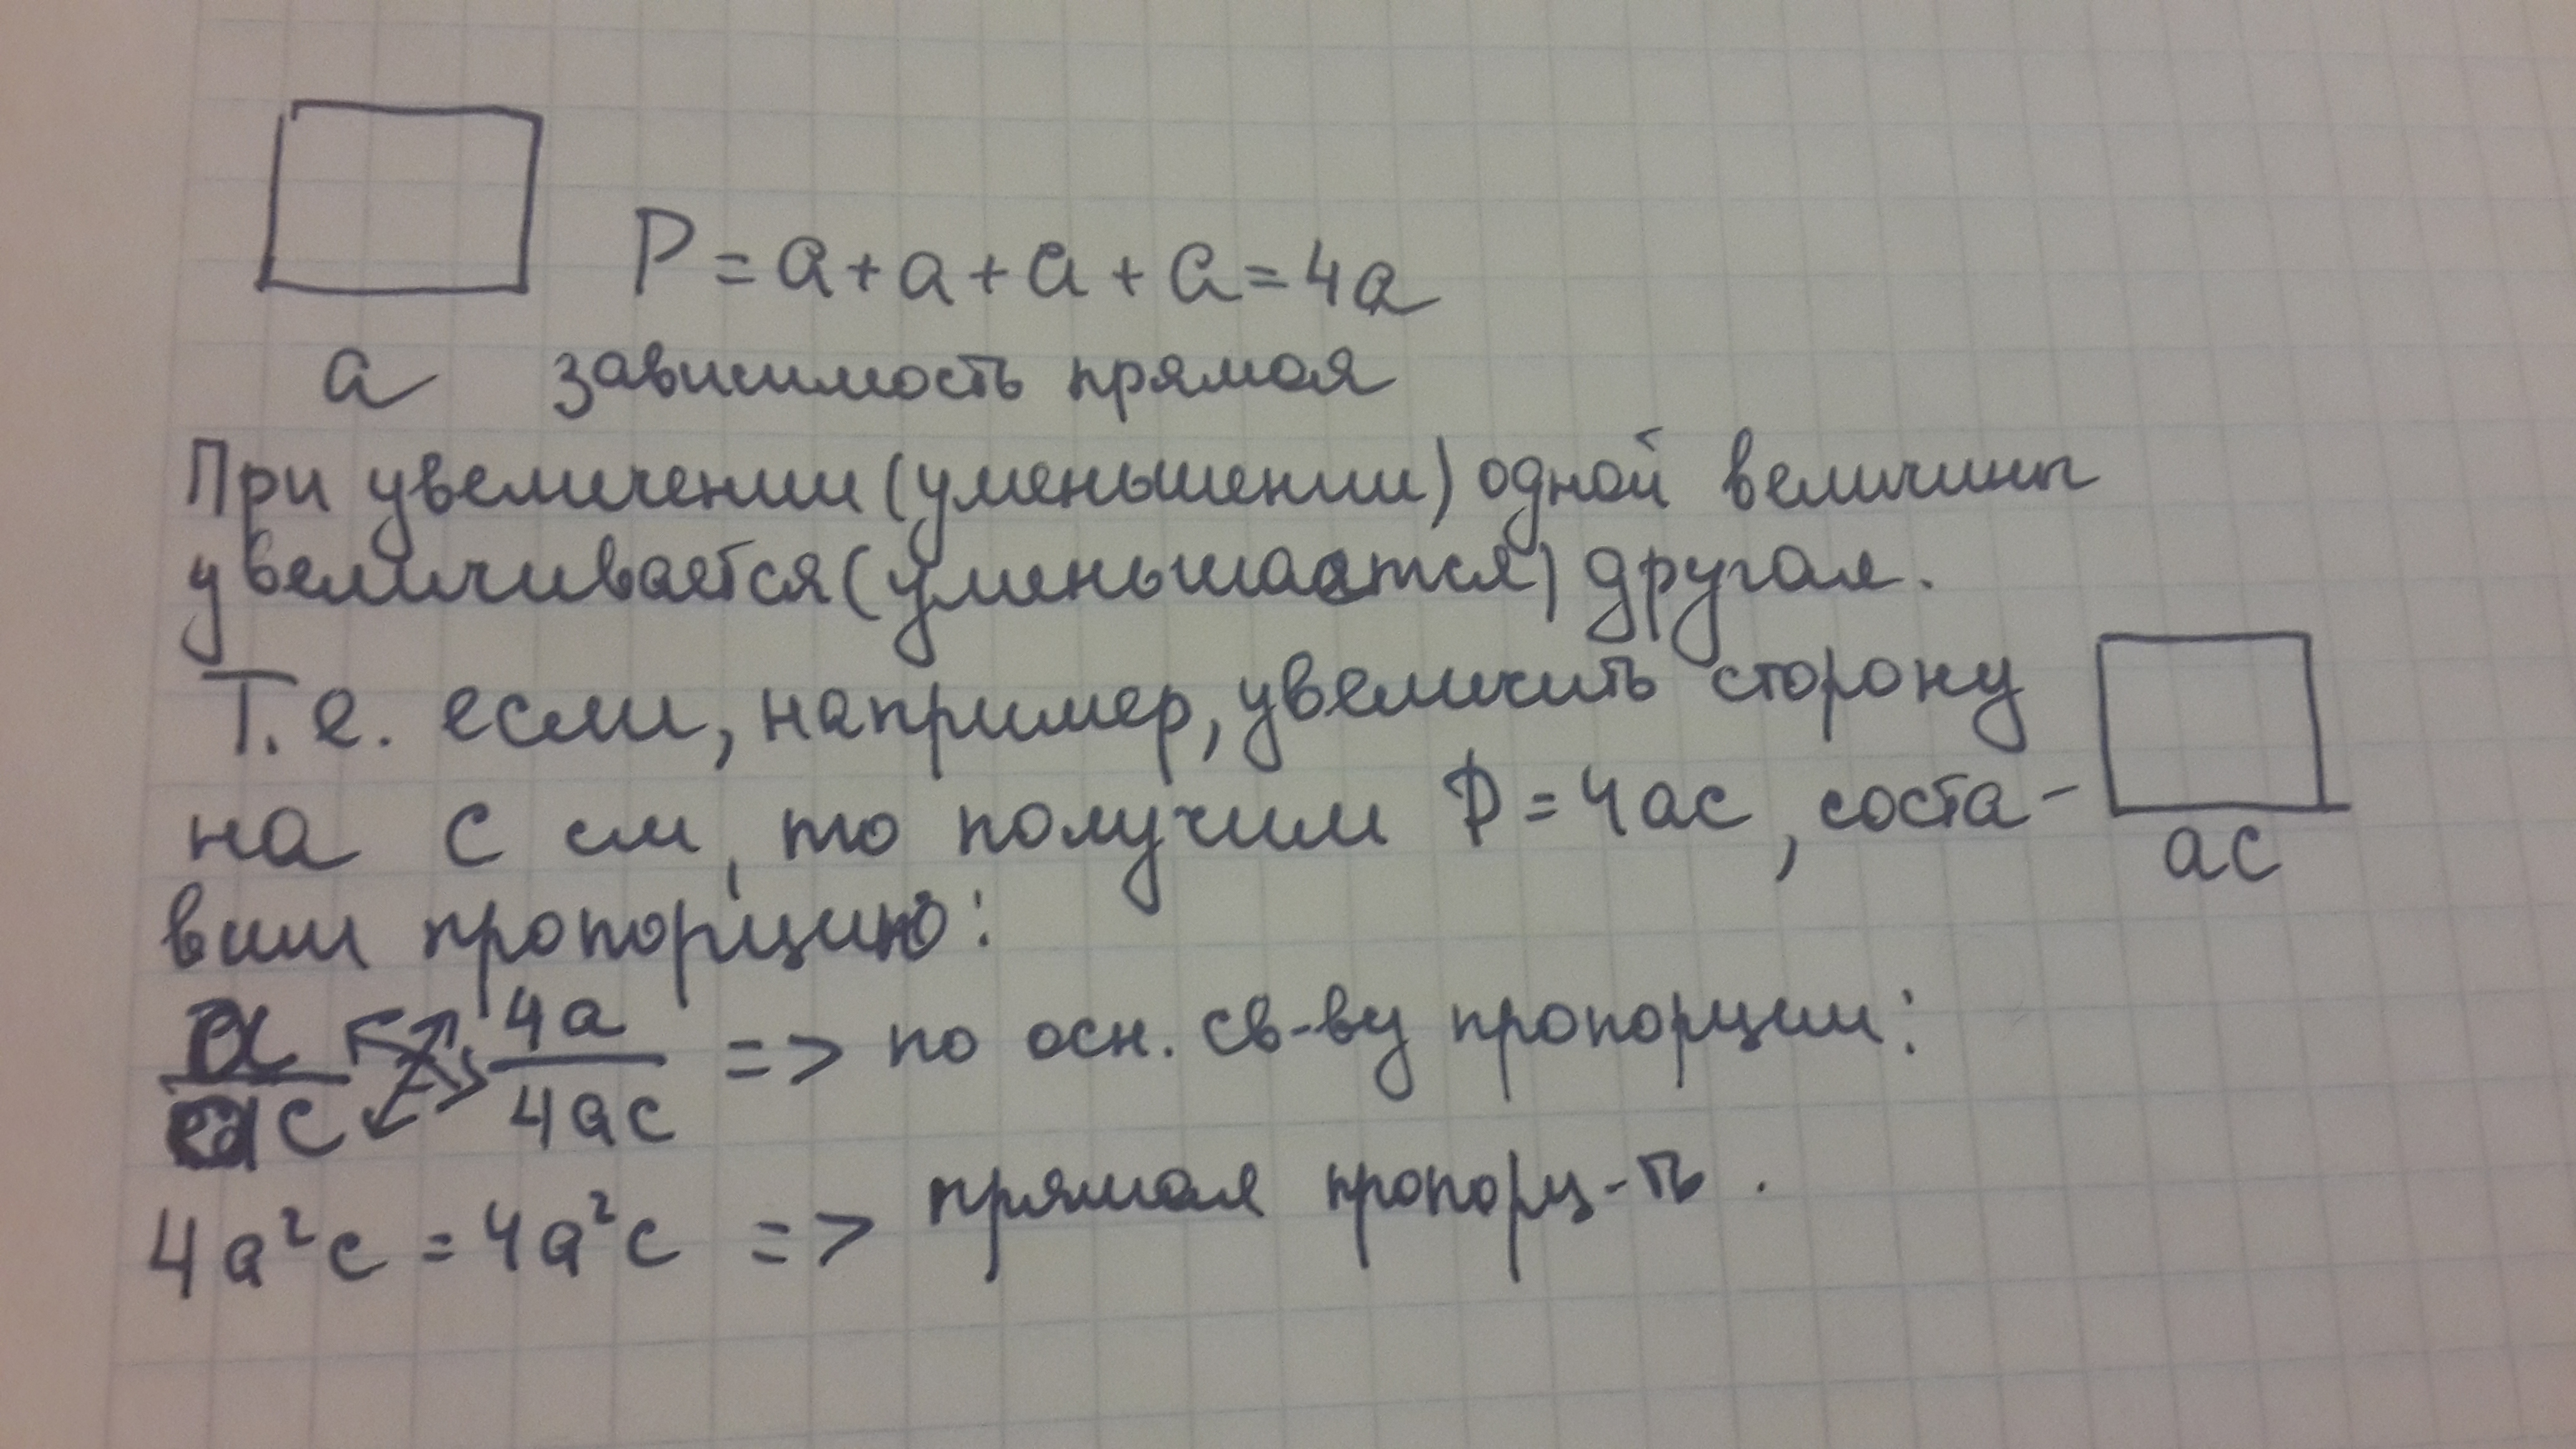 P = a + a + a + a = 4a
a зависимость прямая
При увеличении (уменьшении) одной величины
увеличивается (уменьшается) другая.
Т.е. если, например, увеличить сторону
на c см, то получим P = 4ac, соста-
ac
вим пропорцию:
a/ac 4a/4ac => по осн. св-ву пропорции:
4a²c = 4a²c => прямая пропорц-ть.